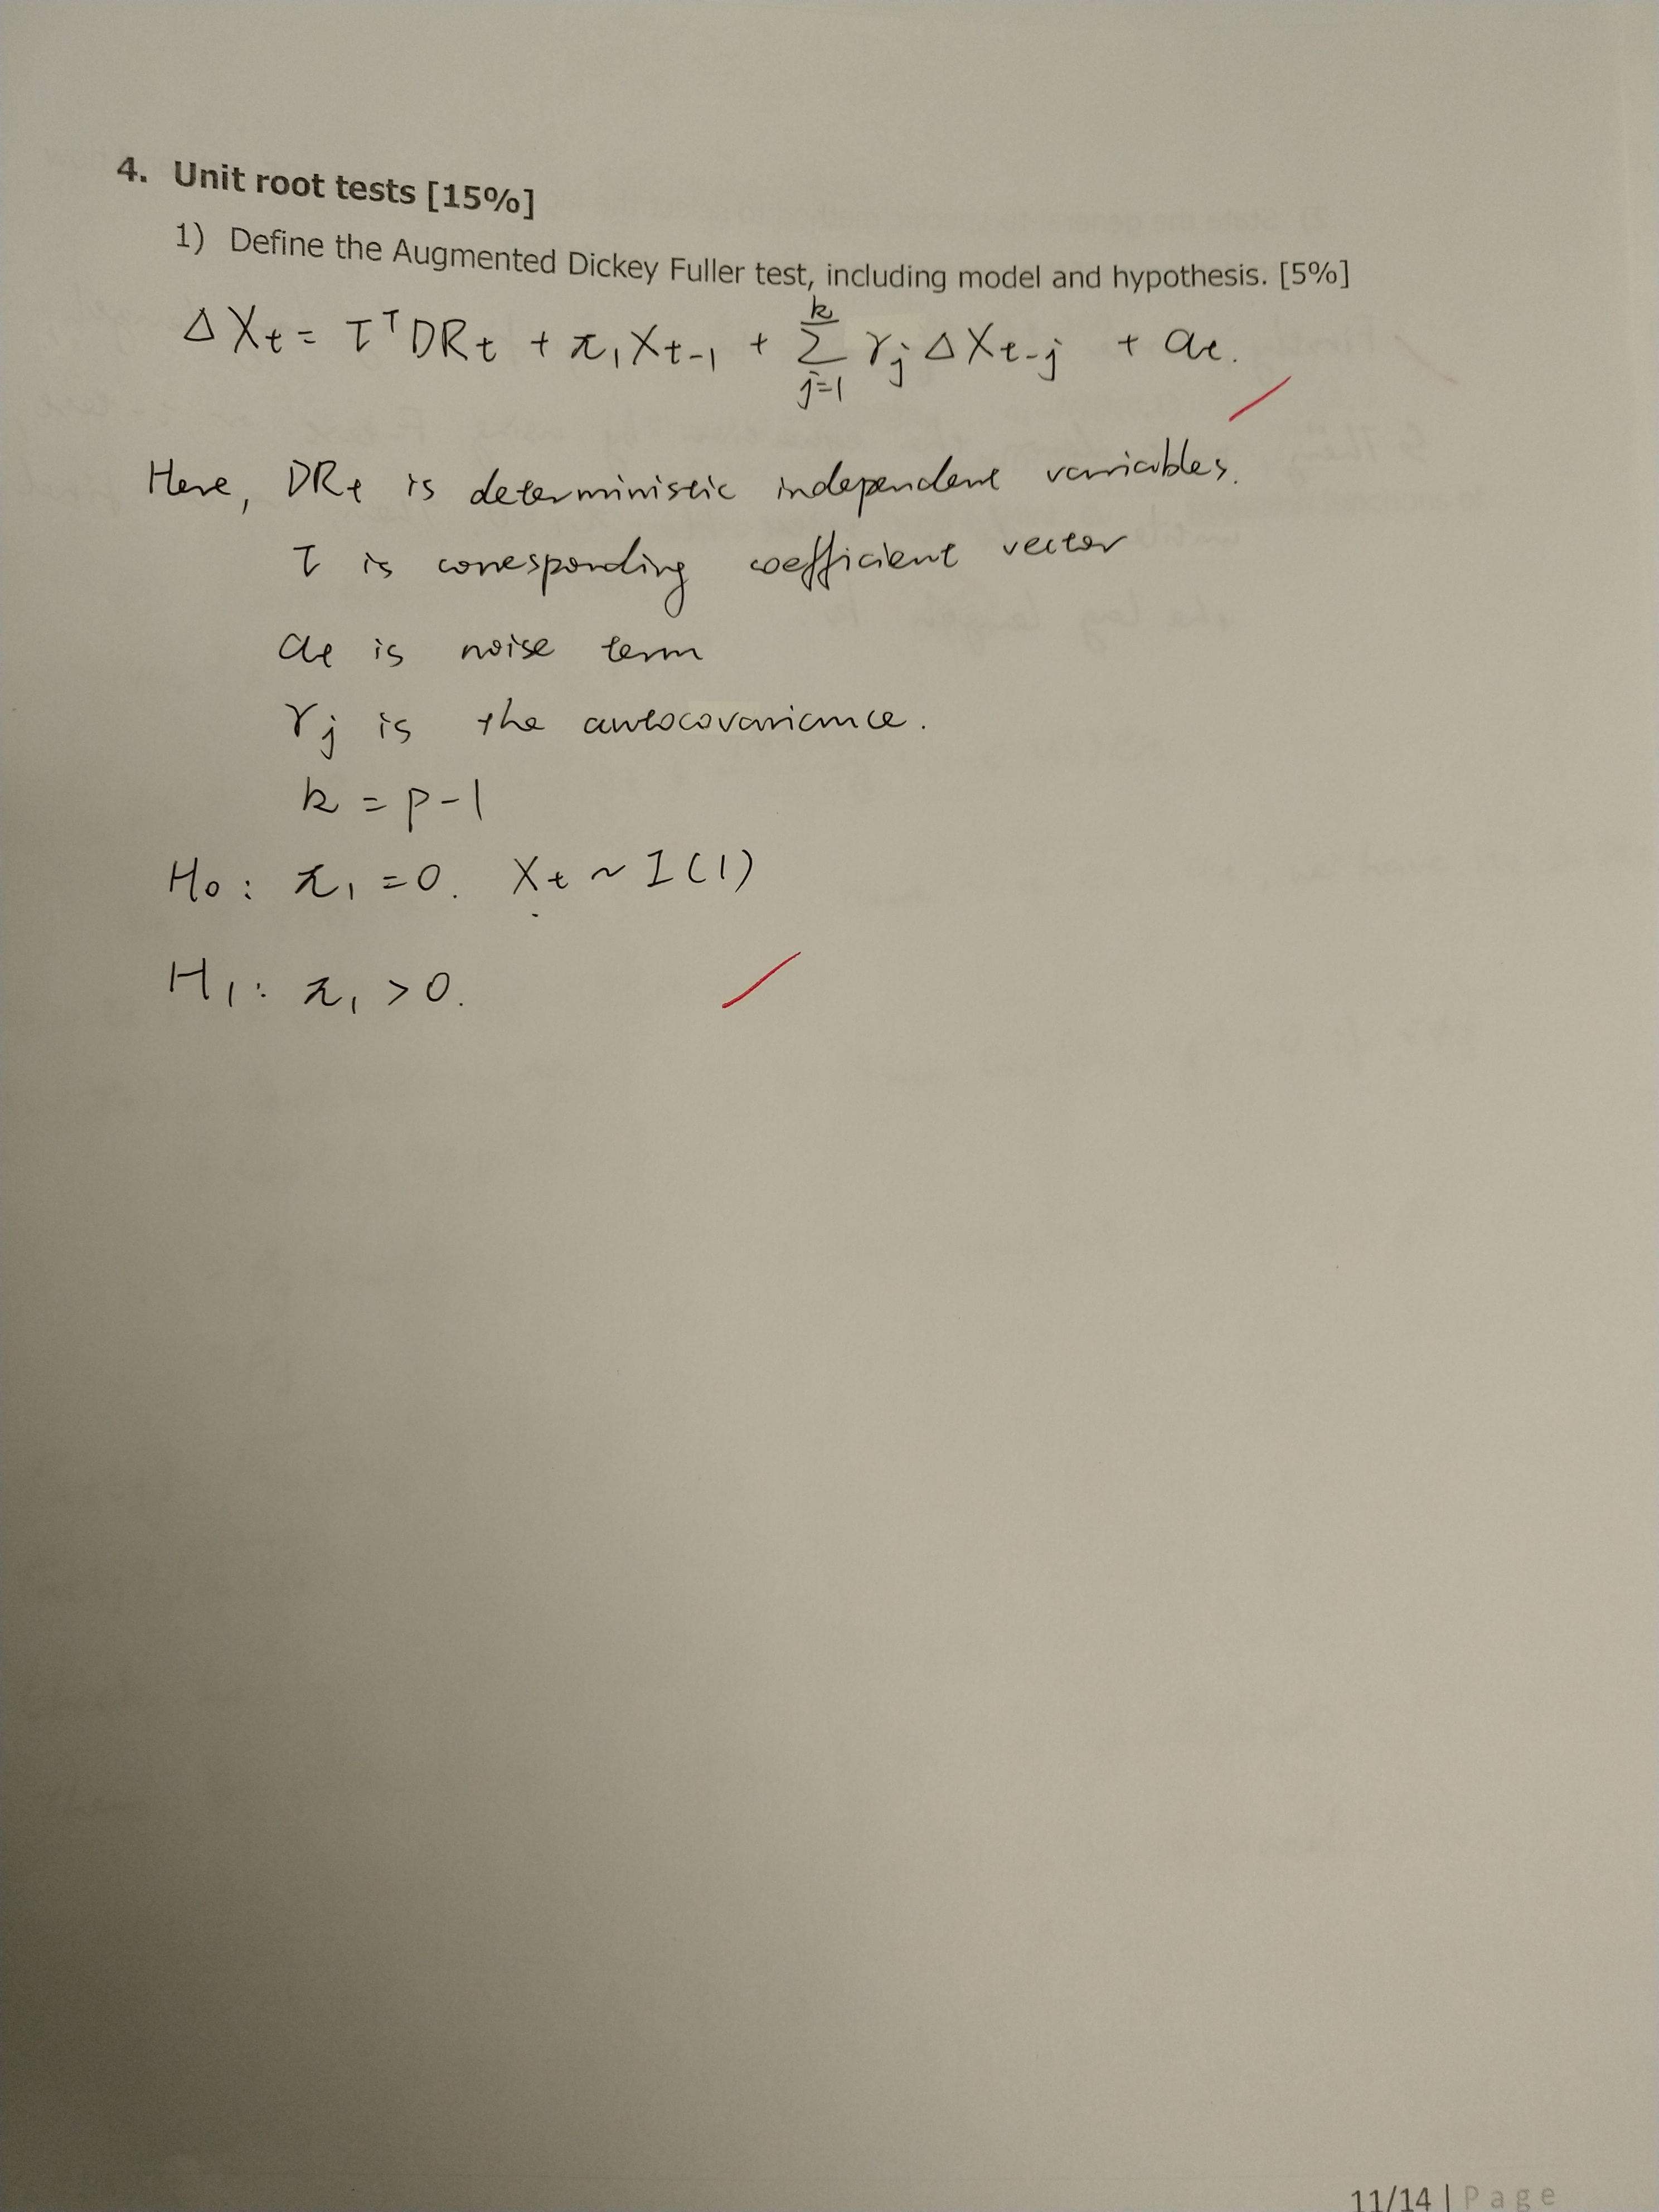 4. Unit root tests [15%]
1) Define the Augmented Dickey Fuller test, including model and hypothesis. [5%]
ΔXt = τᵀDRt + π₁Xt-1 + Σ(j=1 to k) γj ΔXt-j + at.
Here, DRt is deterministic independent variables.
τ is corresponding coefficient vector
at is noise term
γj is the autocovariance.
k = p-1
H0: π₁ = 0. Xt ~ I(1)
H1: π₁ > 0.
11/14 | Page